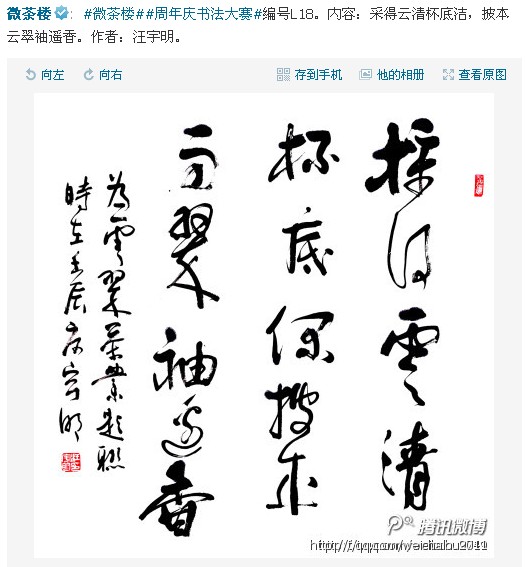 微茶楼: #微茶楼##周年庆书法大赛#编号L18。内容：采得云清杯底洁，披本
云翠袖遥香。作者：汪宇明。
向左 向右 存到手机 他的相册 查看原图
採得雲清
杯底披本
云翠袖遥香
為雲翠茶業題聯
時在壬辰宇明
腾讯微博
http://t.qq.com/weichalou2011